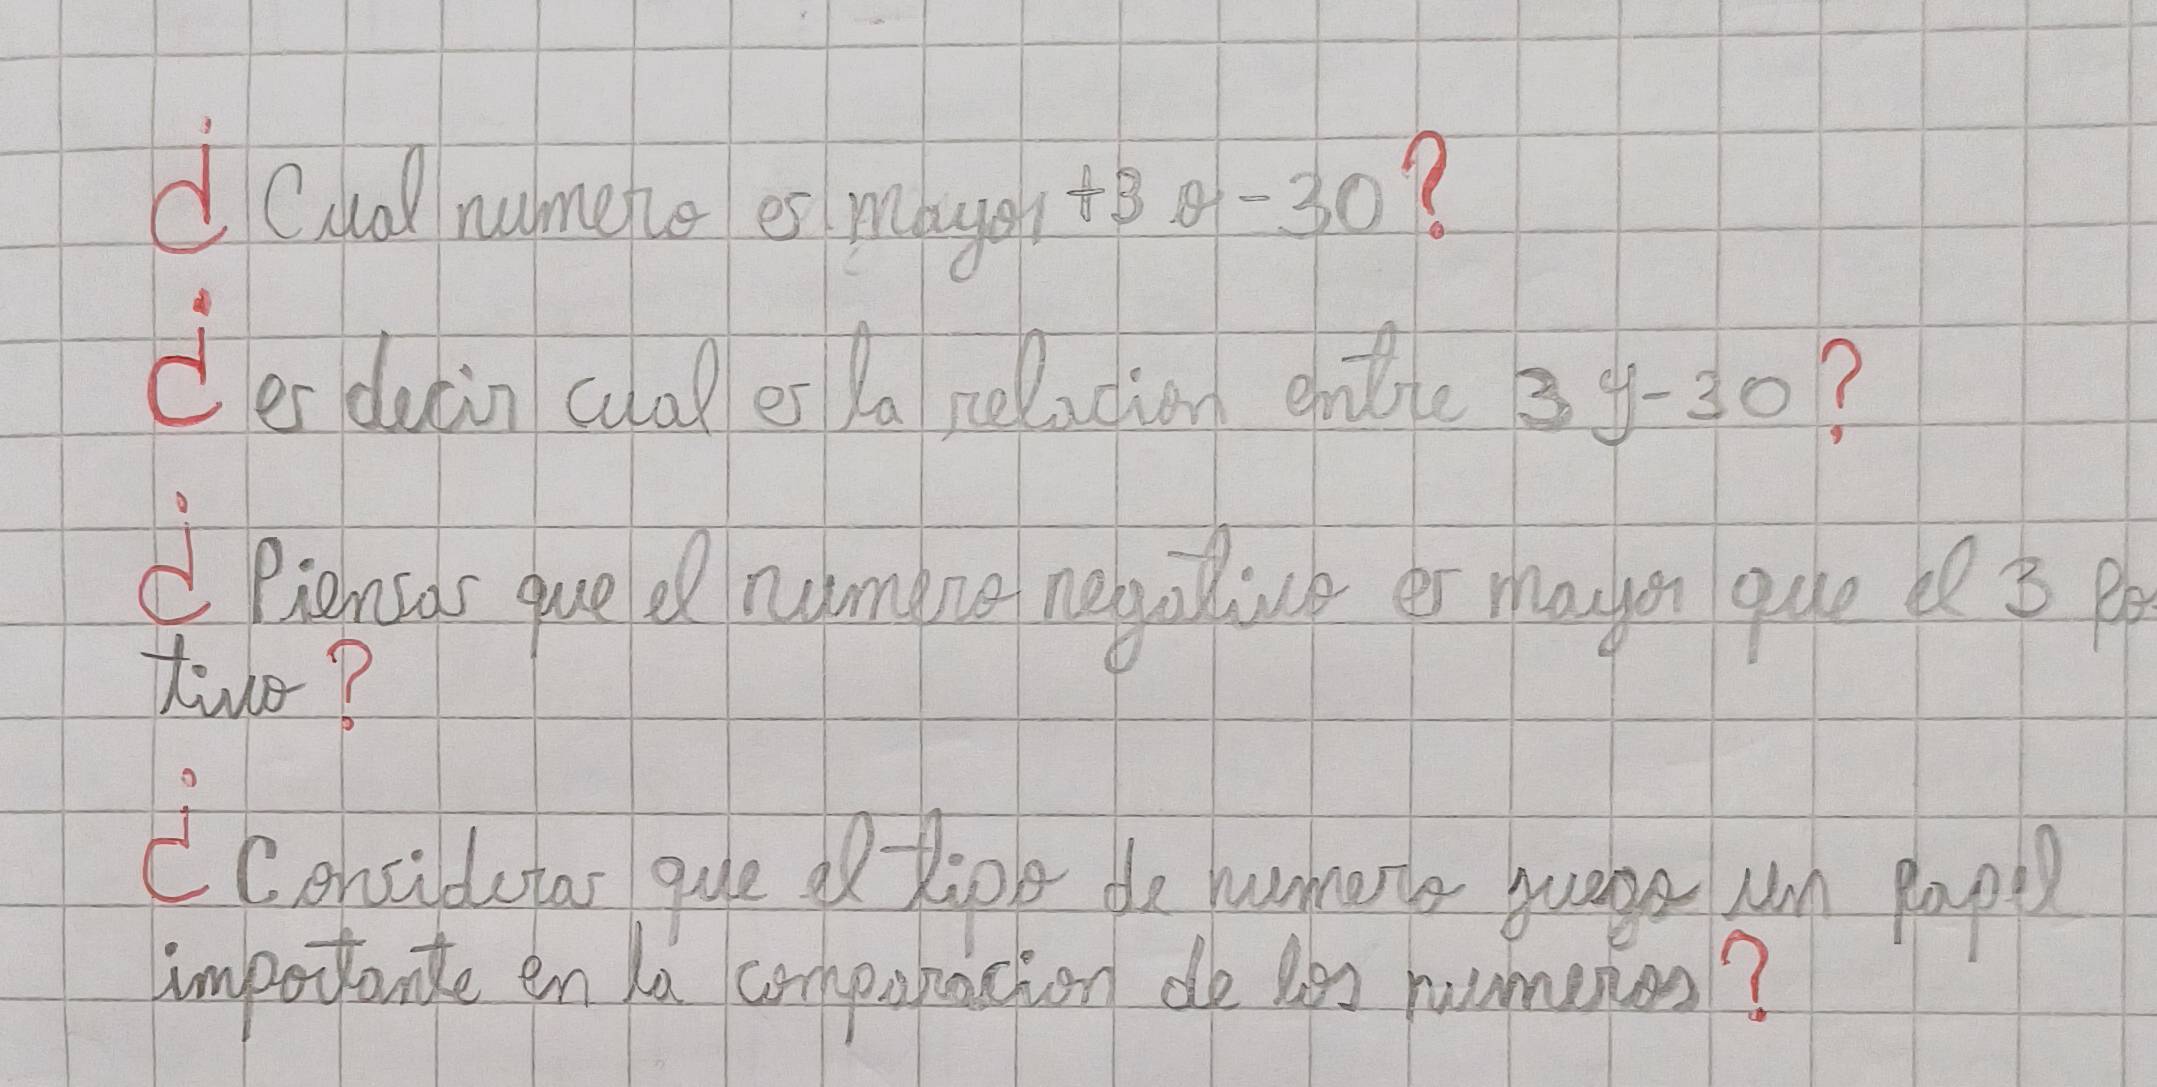 ¿Cual numero es mayor +3 o -30?
¿es decir cual es la relacion entre 3 y -30?
¿Piensas que el numero negativo es mayor que el 3 po
tivo?
¿Consideras que el tipo de numero juega un papel
importante en la comparacion de los numeros?